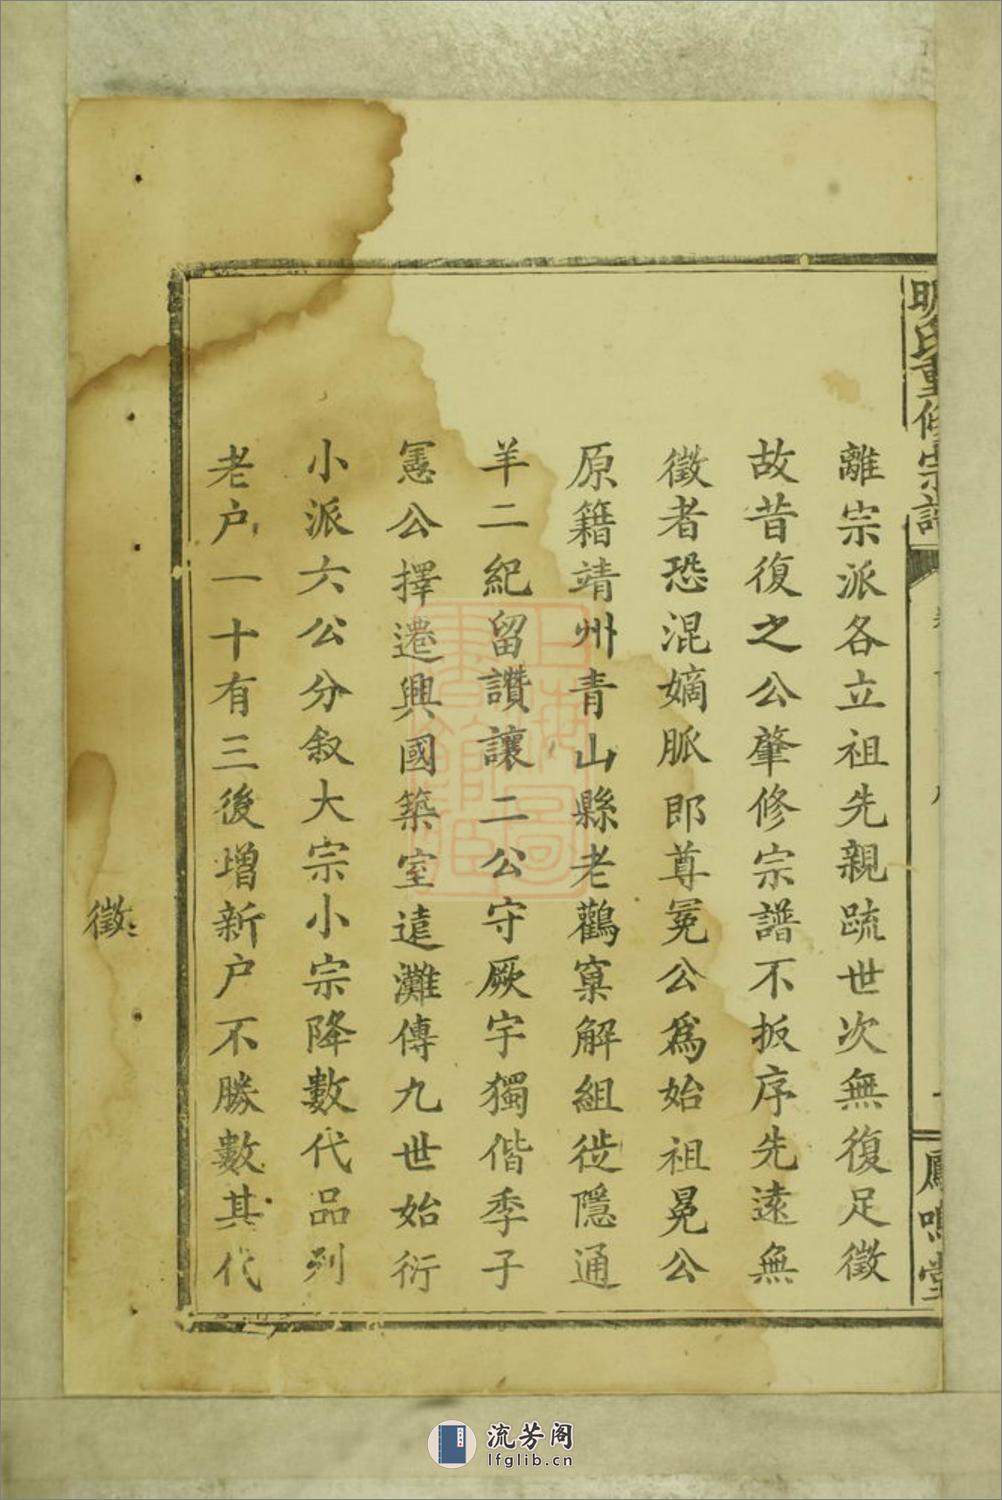 明氏重修宗譜
鳳鳴堂
離宗派各立祖先親疏世次無復足徵
故昔復之公肇修宗譜不扳序先遠無
徵者恐混嫡脈郎尊冕公爲始祖冕公
原籍靖州青山縣老鸛窠解組徙隱通
羊二紀留讚讓二公守厥宇獨偕季子
憲公擇遷興國築室遠灘傳九世始衍
小派六公分叙大宗小宗降數代品列
老户一十有三後增新户不勝數其代
徵
流芳阁
lfglib.cn